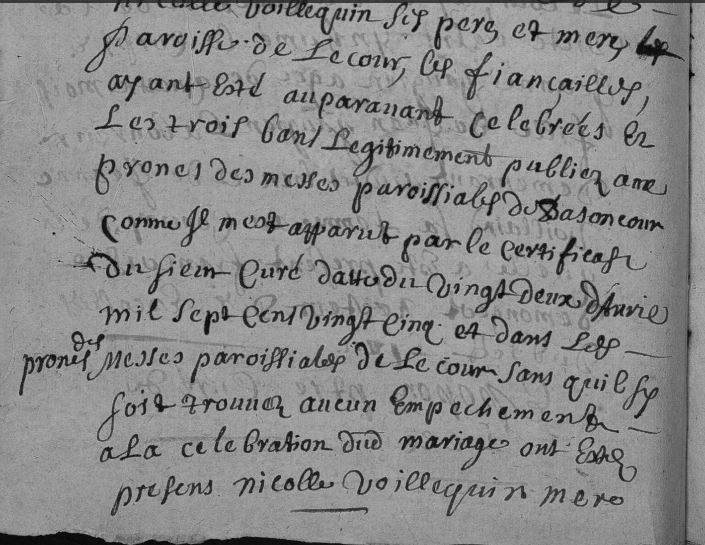 nicolle voillequin ses pere et mere
paroisse de Lecour, les fiançailles,
ayant esté auparavant celebrées et
Les trois bans Legitimement publiez aux
prones des messes paroissiales de Basoncour
comme Il m'est apparut par le certificat
du sieur Curé datté du vingt deux d'Avril
mil sept cens vingt cinq et dans Les
prones des Messes paroissiales de Lecour sans quil sy
soit trouvez aucun Empechement
a La celebration dud mariage ont Esté
presens nicolle voillequin mere